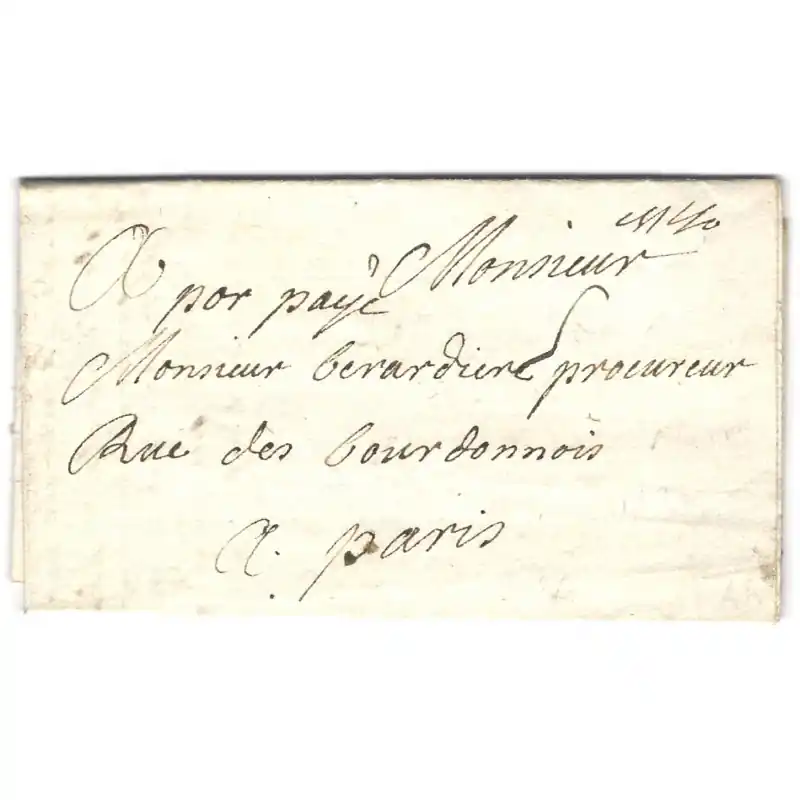 A Monsieur
por payé
Monsieur berardiere procureur
Rue des bourdonnois
A. paris